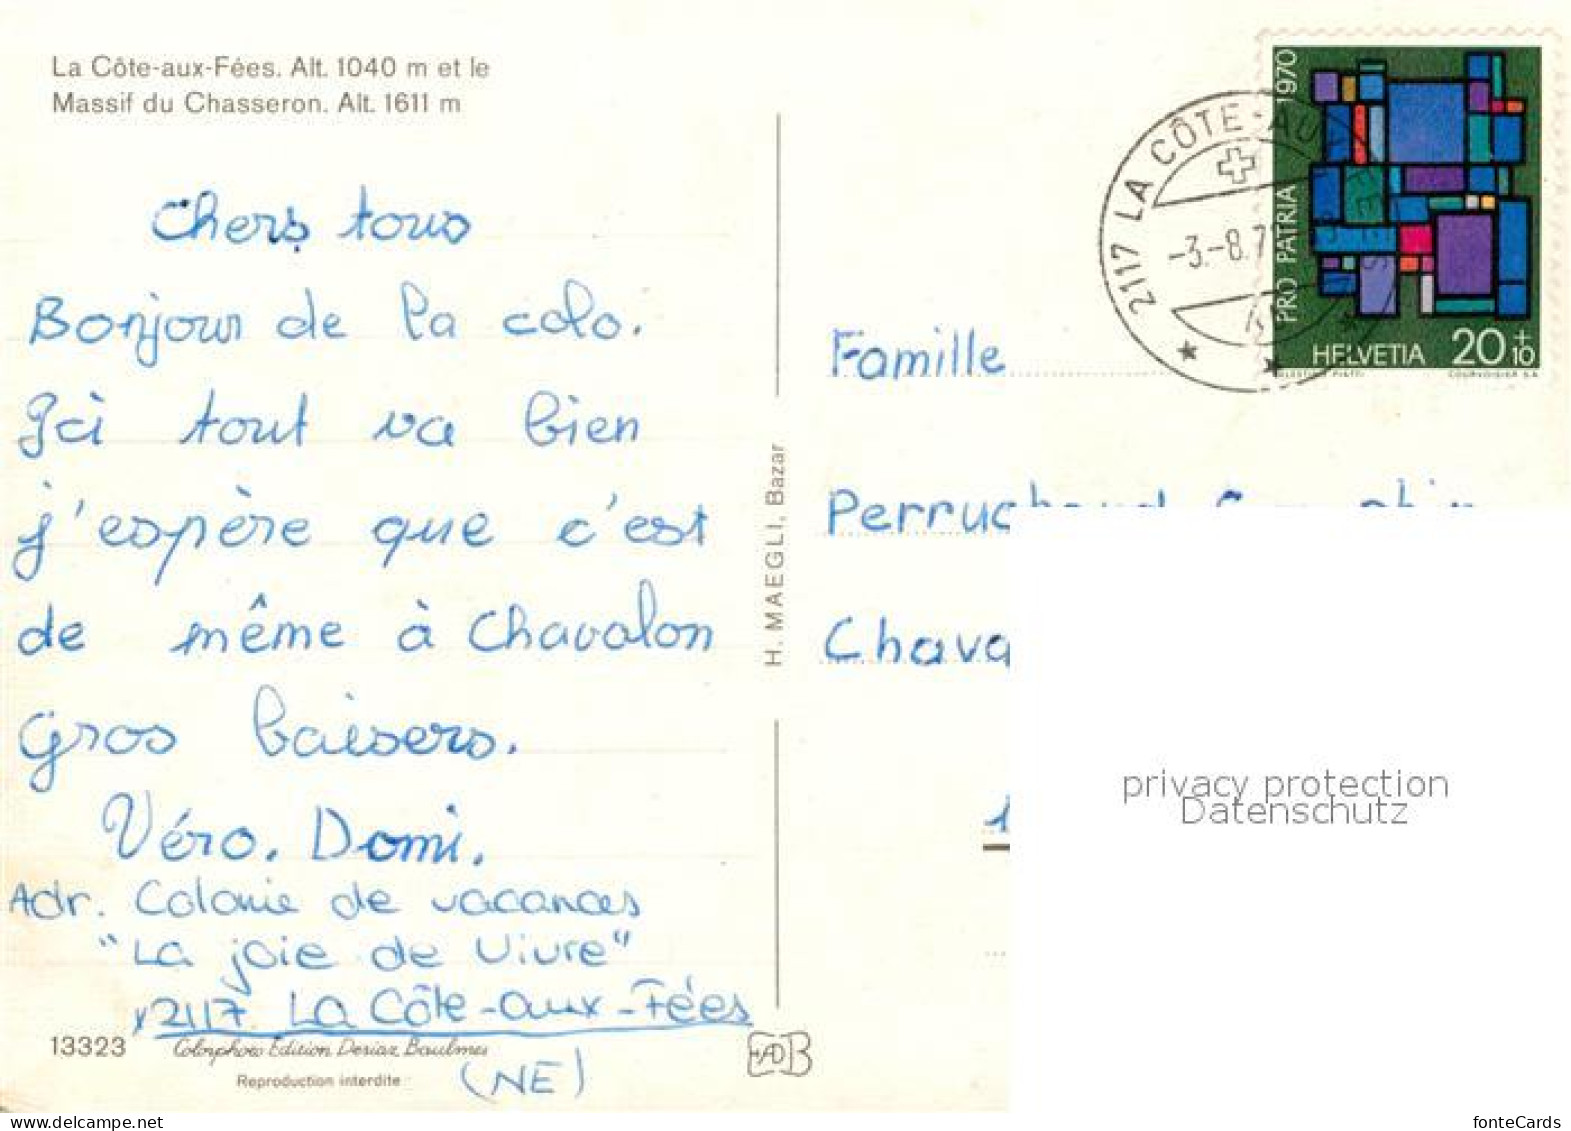 La Côte-aux-Fées. Alt. 1040 m et le
Massif du Chasseron. Alt. 1611 m
Chers tous
Bonjour de la colo.
Ici tout va bien
j'espère que c'est
de même à Chavalon
Gros baisers.
Véro. Domi.
Adr. Colonie de vacances
"La joie de vivre"
2117 La Côte-aux-Fées
(NE)
13323
Colorphoto Edition Deriaz, Baulmes
Reproduction interdite
H. MAEGLI, Bazar
2117 LA CÔTE-AUX-FÉES
-3.-8.7
PRO PATRIA 1970
HELVETIA 20+10
COURVOISIER S.A.
Famille
privacy protection
Datenschutz
delcampe.net
fonteCards